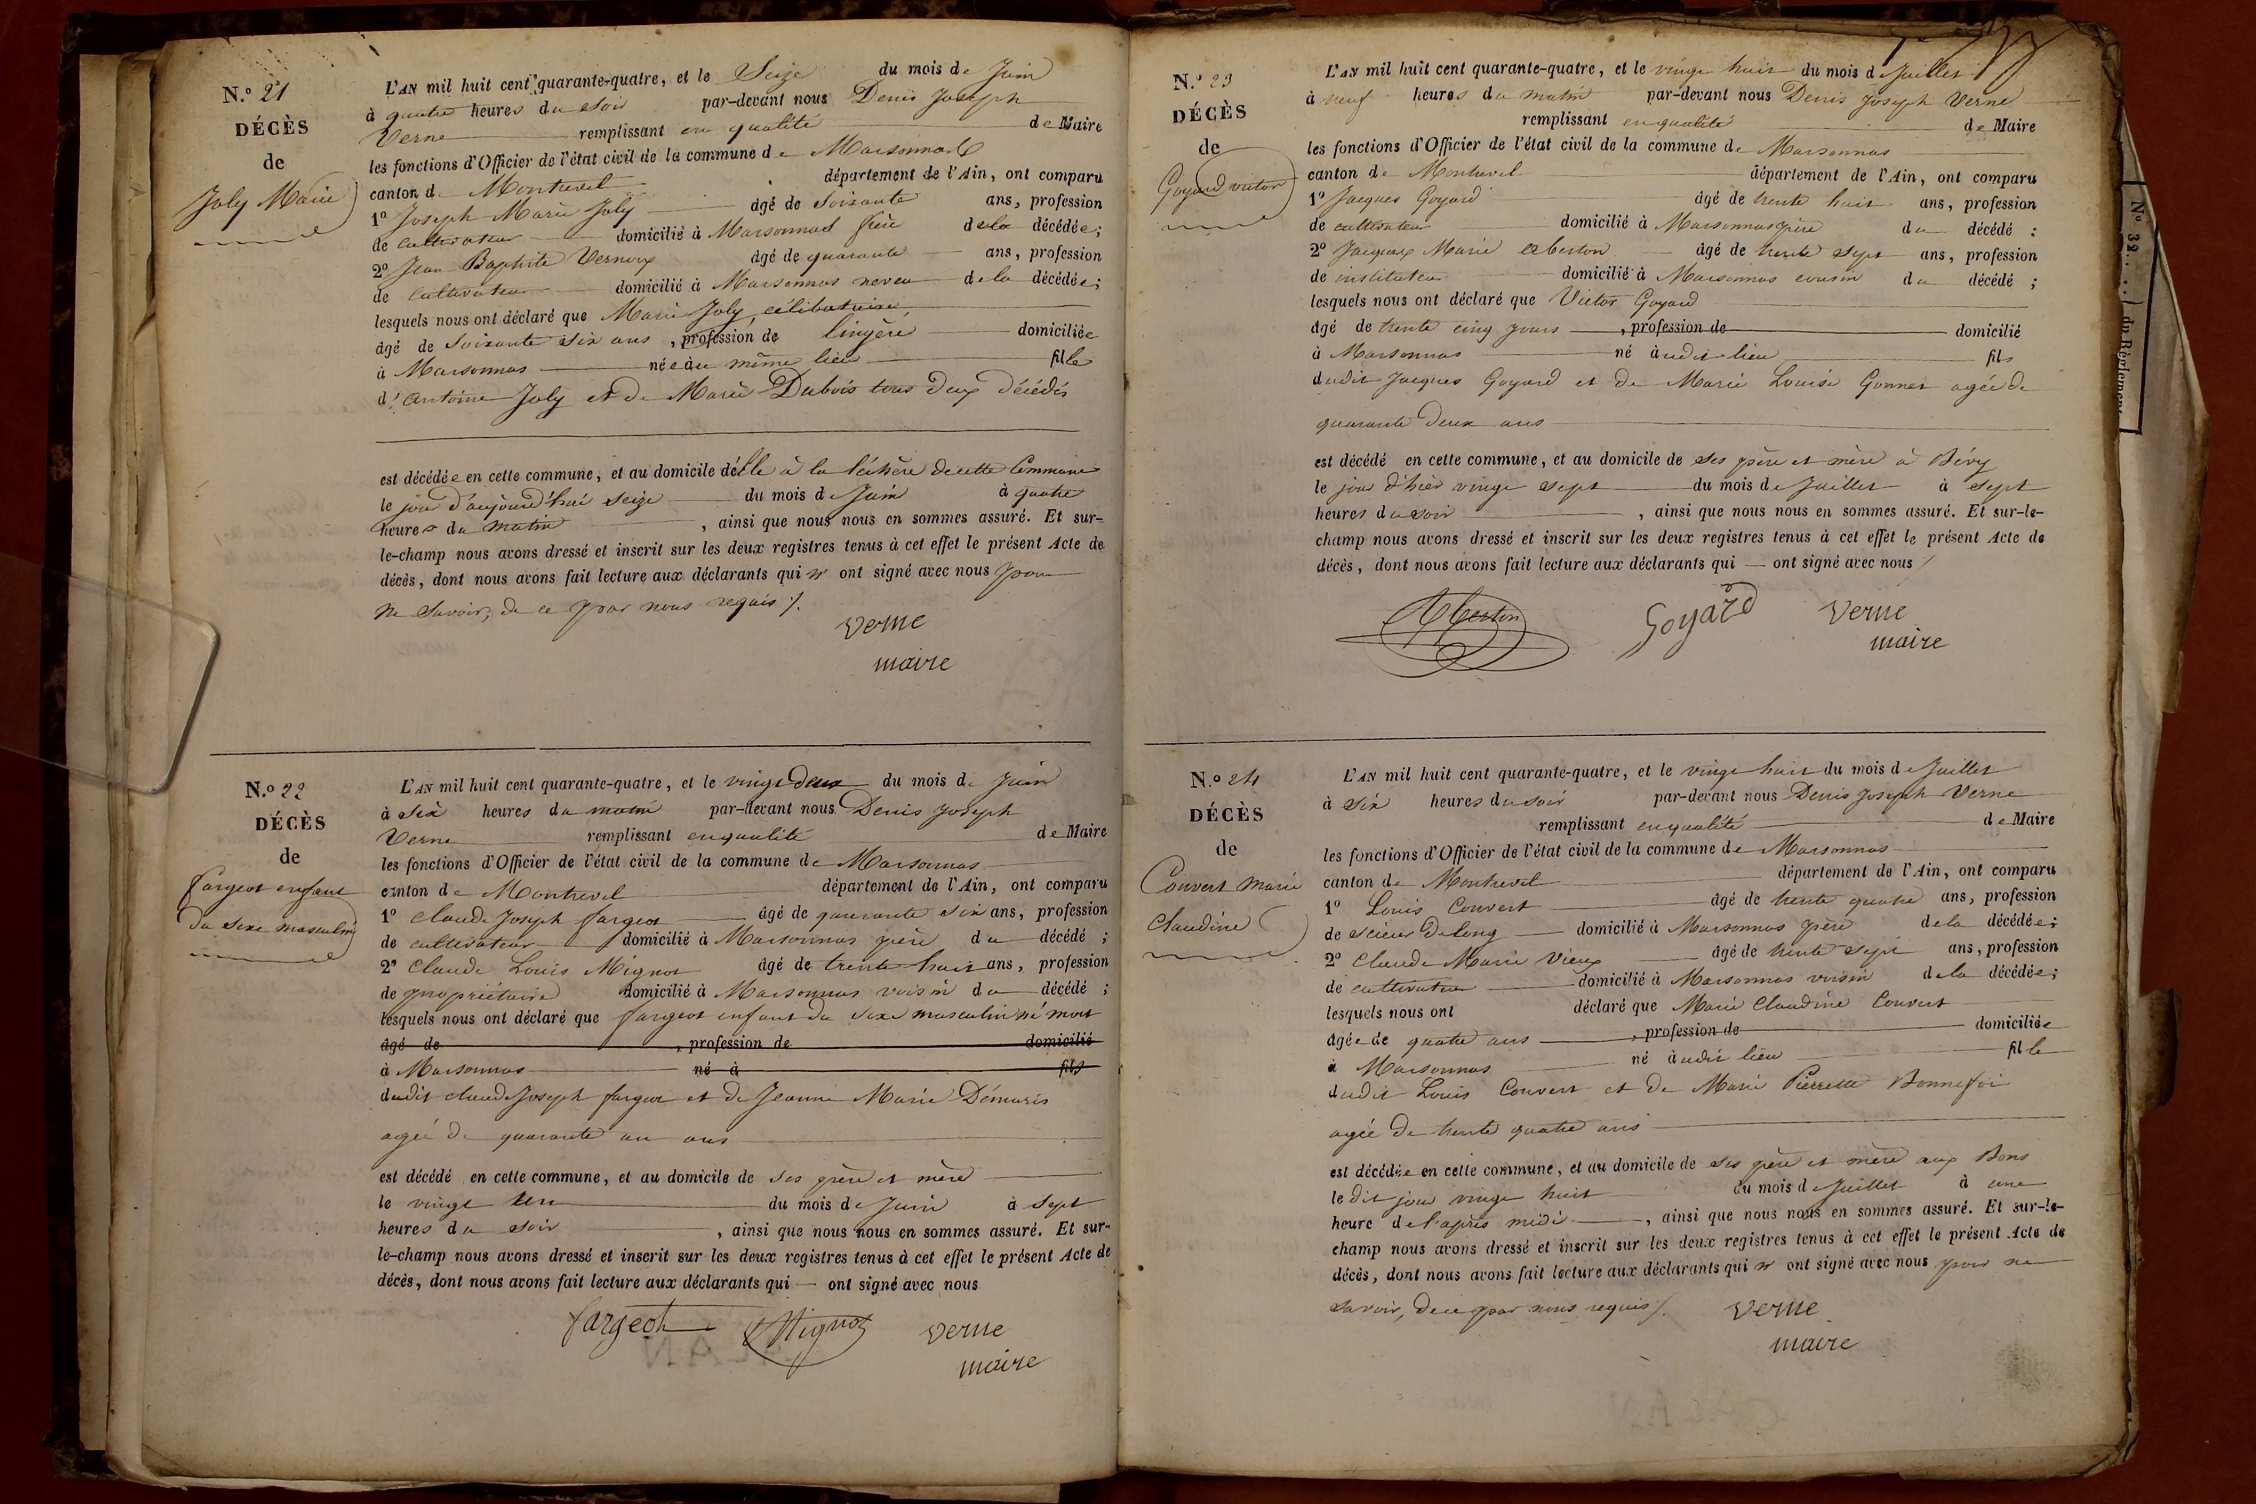 N.º 21
DÉCÈS
de
Joly Marie
L'AN mil huit cent quarante-quatre, et le Seize du mois de Juin
à quatre heures du soir par-devant nous Denis Joseph
Verne remplissant en qualité de Maire
les fonctions d'Officier de l'état civil de la commune de Marsonnas
canton de Montrevel département de l'Ain, ont comparu
1º Joseph Marie Joly âgé de soixante ans, profession
de cultivateur domicilié à Marsonnas frère de la décédée;
2º Jean Baptiste Vernoux âgé de quarante ans, profession
de cultivateur domicilié à Marsonnas neveu de la décédée;
lesquels nous ont déclaré que Marie Joly, célibataire,
âgé de soixante six ans, profession de lingère domiciliée
à Marsonnas née au même lieu fille
d'antoine Joly et de Marie Dubois tous deux décédés
est décédée en cette commune, et au domicile d'elle à la léchère de cette Commune
le jour d'aujourd'hui seize du mois de Juin à quatre
heures du matin, ainsi que nous nous en sommes assuré. Et sur-
le-champ nous avons dressé et inscrit sur les deux registres tenus à cet effet le présent Acte de
décès, dont nous avons fait lecture aux déclarants qui n' ont signé avec nous pour
ne savoir, de ce par nous requis ./.
Verne
maire
N.º 22
DÉCÈS
de
fargeot enfant
du sexe masculin
L'AN mil huit cent quarante-quatre, et le vingt deux du mois de Juin
à six heures du matin par-devant nous Denis Joseph
Verne remplissant en qualité de Maire
les fonctions d'Officier de l'état civil de la commune de Marsonnas
canton de Montrevel département de l'Ain, ont comparu
1º Claude Joseph fargeot âgé de quarante six ans, profession
de cultivateur domicilié à Marsonnas père du décédé;
2º Claude Louis Mignot âgé de trente huit ans, profession
de propriétaire domicilié à Marsonnas voisin du décédé;
lesquels nous ont déclaré que fargeot enfant du sexe masculin né mort
âgé de , profession de domicilié
à Marsonnas né à fils
dudit claude Joseph fargeot et de Jeanne Marie Démaris
agée de quarante un ans
est décédé en cette commune, et au domicile de ses père et mère
le vingt un du mois de Juin à sept
heures du soir, ainsi que nous nous en sommes assuré. Et sur-
le-champ nous avons dressé et inscrit sur les deux registres tenus à cet effet le présent Acte de
décès, dont nous avons fait lecture aux déclarants qui — ont signé avec nous
fargeot Mignot Verne
maire
N.º 23
DÉCÈS
de
Goyard victor
L'AN mil huit cent quarante-quatre, et le vingt huit du mois de Juillet
à neuf heures du matin par-devant nous Denis Joseph Verne
remplissant en qualité de Maire
les fonctions d'Officier de l'état civil de la commune de Marsonnas
canton de Montrevel département de l'Ain, ont comparu
1º Jacques Goyard âgé de trente huit ans, profession
de cultivateur domicilié à Marsonnas père du décédé:
2º Jacques Marie Aberton âgé de trente sept ans, profession
de instituteur domicilié à Marsonnas cousin du décédé;
lesquels nous ont déclaré que Victor Goyard
âgé de trente cinq jours, profession de domicilié
à Marsonnas né àudit lieu fils
dudit Jacques Goyard et de Marie Louise Gonnet agée de
quarante deux ans
est décédé en cette commune, et au domicile de ses père et mère à Bévy
le jour d'hier vingt sept du mois de Juillet à sept
heures du soir, ainsi que nous nous en sommes assuré. Et sur-le-
champ nous avons dressé et inscrit sur les deux registres tenus à cet effet le présent Acte de
décès, dont nous avons fait lecture aux déclarants qui — ont signé avec nous /
Aberton Goyard Verne
maire
N.º 24
DÉCÈS
de
Convert marie
claudine
L'AN mil huit cent quarante-quatre, et le vingt huit du mois de Juillet
à six heures du soir par-devant nous Denis Joseph Verne
remplissant en qualité de Maire
les fonctions d'Officier de l'état civil de la commune de Marsonnas
canton de Montrevel département de l'Ain, ont comparu
1º Louis Convert âgé de trente quatre ans, profession
de scieur de long domicilié à Marsonnas père de la décédée;
2º Claude Marie Vieux âgé de trente sept ans, profession
de cultivateur domicilié à Marsonnas voisin de la décédée;
lesquels nous ont déclaré que Marie Claudine Convert
âgée de quatre ans, profession de domiciliée
à Marsonnas né àudit lieu fille
dudit Louis Convert et de Marie Pierrette Bonnefoi
agée de trente quatre ans
est décédée en cette commune, et au domicile de ses père et mère aux Bons
le dit jour vingt huit du mois de Juillet à une
heure de l'après midi, ainsi que nous nous en sommes assuré. Et sur-le-
champ nous avons dressé et inscrit sur les deux registres tenus à cet effet le présent Acte de
décès, dont nous avons fait lecture aux déclarants qui n' ont signé avec nous pour ne
savoir, de ce par nous requis ./.
Verne
maire
Nº 32
du Règlement